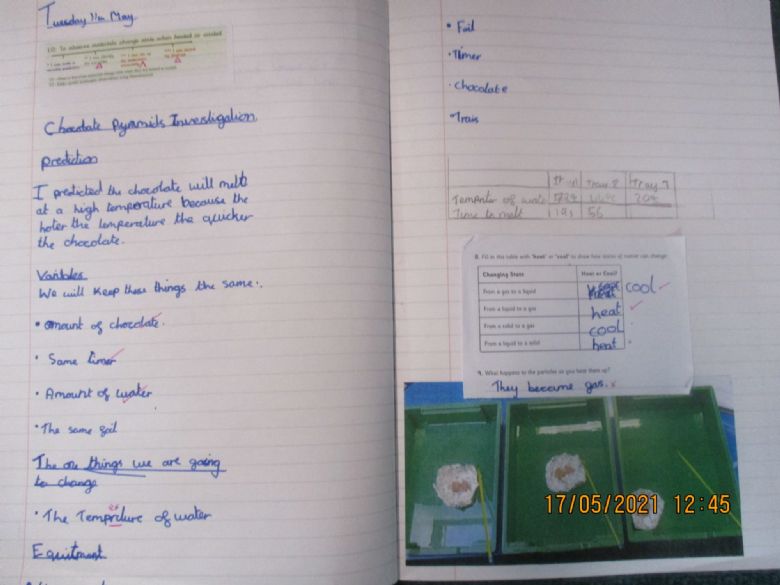 Tuesday 11th May.
LO: To observe materials change state when heated or cooled
Chocolate Pyramids Investigation
Prediction
I predicted the chocolate will melt
at a high temperature because the
hoter the temperature the quicker
the chocolate.
Variables
We will keep these things the same:
• amount of chocolate.
• Same timer
• Amount of water
• The same foil
The one things we are going
to change
• The Temprature of water
Equitment
• Foil
• Timer
• Chocolate
• Trais
Time to melt
8. Fill in this table with 'heat' or 'cool' to show how states of matter can change:
Changing State Heat or Cool?
From a gas to a liquid cool
From a liquid to a gas heat
From a solid to a gas cool
From a liquid to a solid heat
9. What happens to the particles as you heat them up?
They become gas.
17/05/2021 12:45